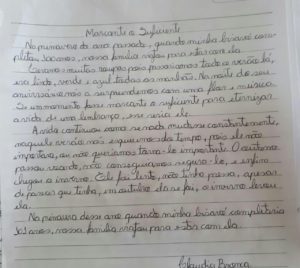 Marcante o Suficiente
Na primavera do ano passado, quando minha bisavó com-
pletou 100 anos, nossa família viajou para estar com ela.
Levamos muitas roupas pois passaríamos todo o verão lá,
era lindo, verde e azul todas as manhãs. Na noite do seu
aniversário nós a surpreendemos com uma flor e música.
Se um momento fosse marcante o suficiente para eternizar
a vida de uma lembrança, esse seria ele.
A vida continuou como se nada mudasse constantemente,
naquele verão nós esquecemos do tempo, pois ele não
importava, ou não queríamos torná-lo importante. O outono
passou voando, não conseguimos segurá-lo, e enfim
chegou o inverno. Ele foi lento, não tinha pressa, apesar
de parecer que tinha, em outubro ela se foi, o inverno levou
ela.
Na primavera desse ano quando minha bisavó completaria
101 anos, nossa família viajou para estar com ela.
Claudia Branca